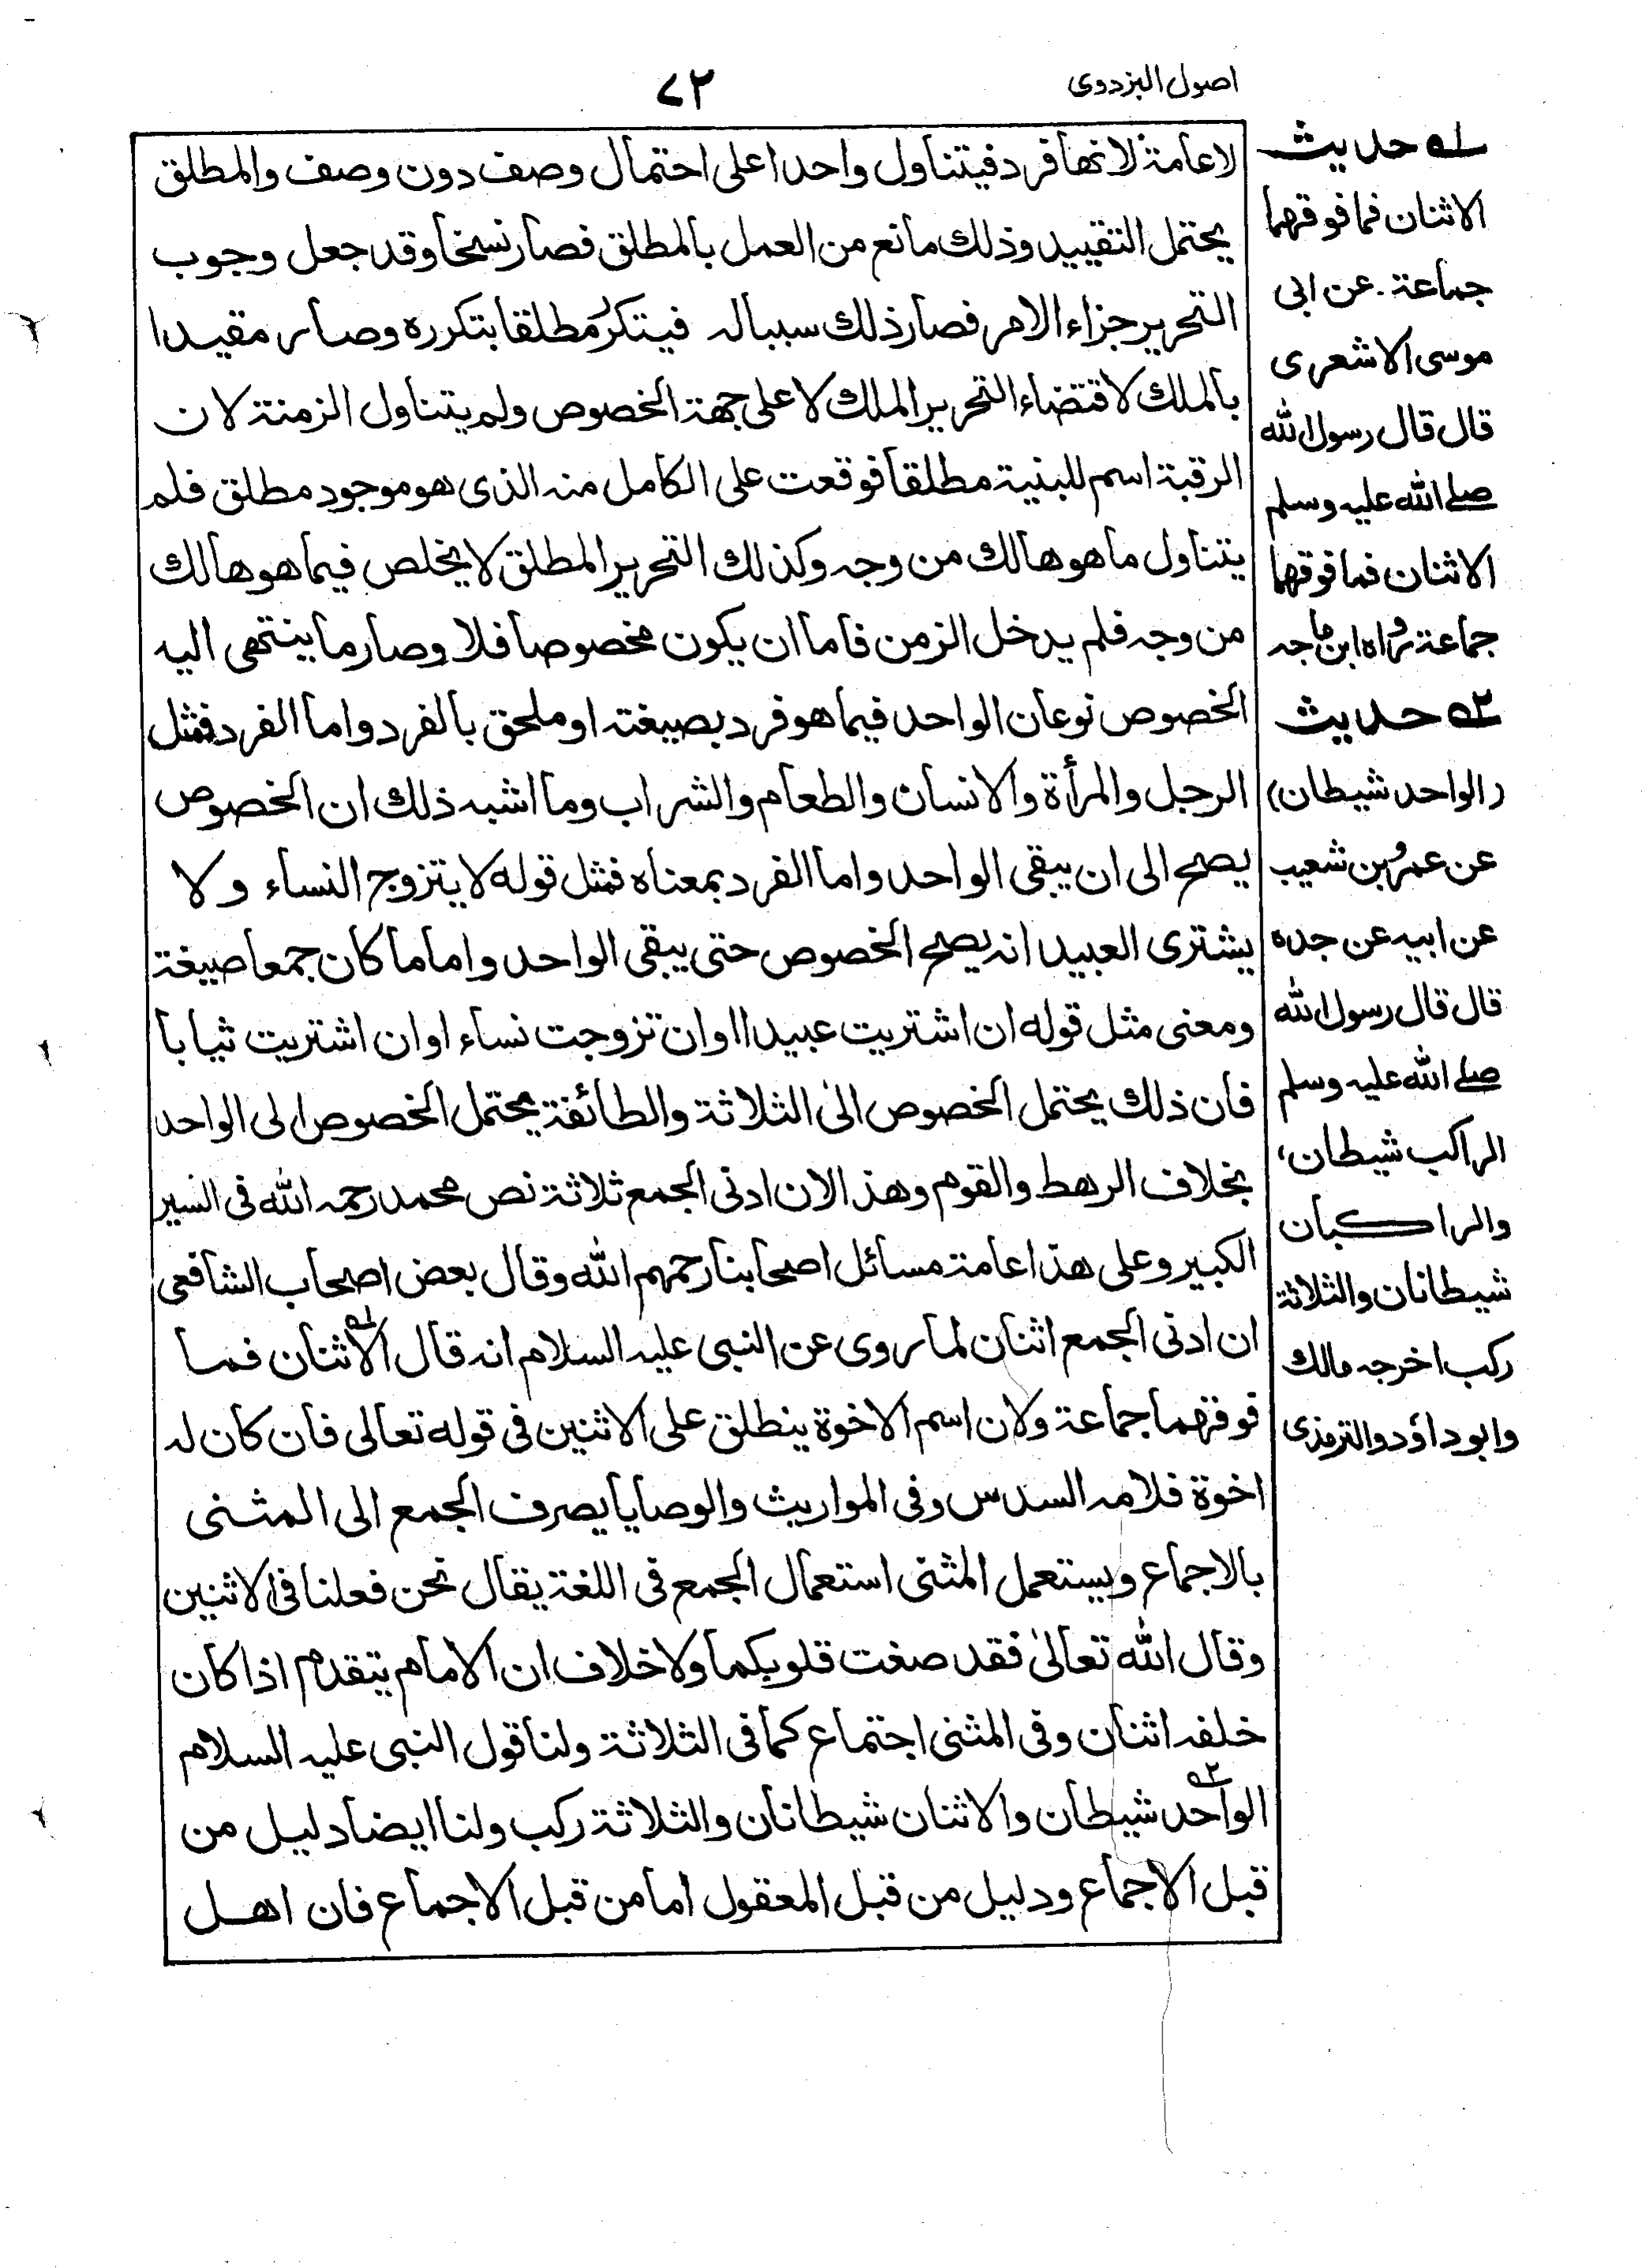 اصول البزدوى
٧٢
لا عامة لانها فرد فيتناول واحدا على احتمال وصف دون وصف والمطلق
يحتمل التقييد وذلك مانع من العمل بالمطلق فصار نسخا وقد جعل وجوب
التحرير جزاء الامر فصار ذلك سببا له فيتكرر مطلقا بتكرره وصار مقيدا
بالملك لاقتضاء التحرير الملك لا على جهة الخصوص ولم يتناول الزمنة لان
الرقبة اسم للبنية مطلقا فوقعت على الكامل منه الذى هو موجود مطلق فلم
يتناول ما هو هالك من وجه وكذلك التحرير المطلق لا يخلص فيما هو هالك
من وجه فلم يدخل الزمن فاما ان يكون مخصوصا فلا وصار ما ينتهى اليه
الخصوص نوعان الواحد فيما هو فرد بصيغته او ملحق بالفرد واما الفرد فمثل
الرجل والمرأة والانسان والطعام والشراب وما اشبه ذلك ان الخصوص
يصح الى ان يبقى الواحد واما الفرد بمعناه فمثل قوله لا يتزوج النساء ولا
يشترى العبيد انه يصح الخصوص حتى يبقى الواحد واما ما كان جمعا صيغة
ومعنى مثل قوله ان اشتريت عبيدا او ان تزوجت نساء او ان اشتريت ثيابا
فان ذلك يحتمل الخصوص الى الثلاثة والطائفة يحتمل الخصوص الى الواحد
بخلاف الرهط والقوم وهذا لان ادنى الجمع ثلاثة نص محمد رحمه الله فى السير
الكبير وعلى هذا عامة مسائل اصحابنا رحمهم الله وقال بعض اصحاب الشافعى
ان ادنى الجمع اثنان لما روى عن النبى عليه السلام انه قال الاثنان فما
فوقهما جماعة ولان اسم الاخوة ينطلق على الاثنين فى قوله تعالى فان كان له
اخوة فلامه السدس وفى المواريث والوصايا يصرف الجمع الى المثنى
بالاجماع ويستعمل المثنى استعمال الجمع فى اللغة يقال نحن فعلنا فى الاثنين
وقال الله تعالىٰ فقد صغت قلوبكما ولا خلاف ان الامام يتقدم اذا كان
خلفه اثنان وفى المثنى اجتماع كما فى الثلاثة ولنا قول النبى عليه السلام
الواحد شيطان والاثنان شيطانان والثلاثة ركب ولنا ايضا دليل من
قبل الاجماع ودليل من قبل المعقول اما من قبل الاجماع فان اهل
١ه حديث
الاثنان فما فوقهما
جماعة. عن ابى
موسى الاشعرى
قال قال رسول الله
صلے الله عليه وسلم
الاثنان فما فوقهما
جماعة رواه ابن ماجه
٢ه حديث
(الواحد شيطان)
عن عمرو بن شعيب
عن ابيه عن جده
قال قال رسول الله
صلے الله عليه وسلم
الراكب شيطان،
والراكبان
شيطانان والثلاثة
ركب اخرجه مالك
وابو داؤد والترمذى